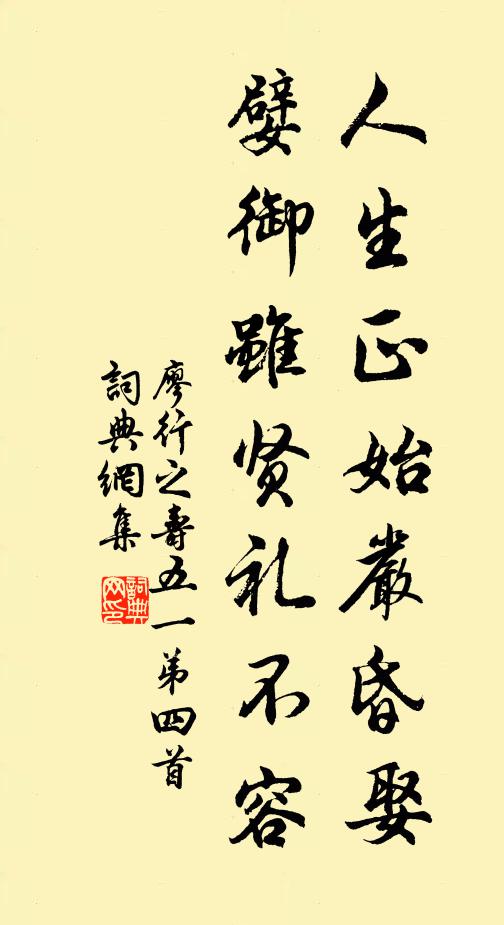 人生正始嚴昏娶
嬖御雖贤礼不容
廖行之壽五一第四首
詞典網集
詞典
网印